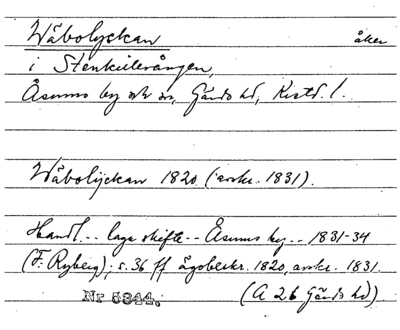 Wåbolyckan åker
i Stenkullevången,
Åsums by och sn, Gärds hd, Kristd. l.
Wåbolyckan 1820 (avskr. 1831).
Handl... laga skifte... Åsums by... 1831-34
(F. Ryberg); s. 36 ff ägobeskr. 1820, avskr. 1831.
Nr 5344. (A 26 Gärds hd).